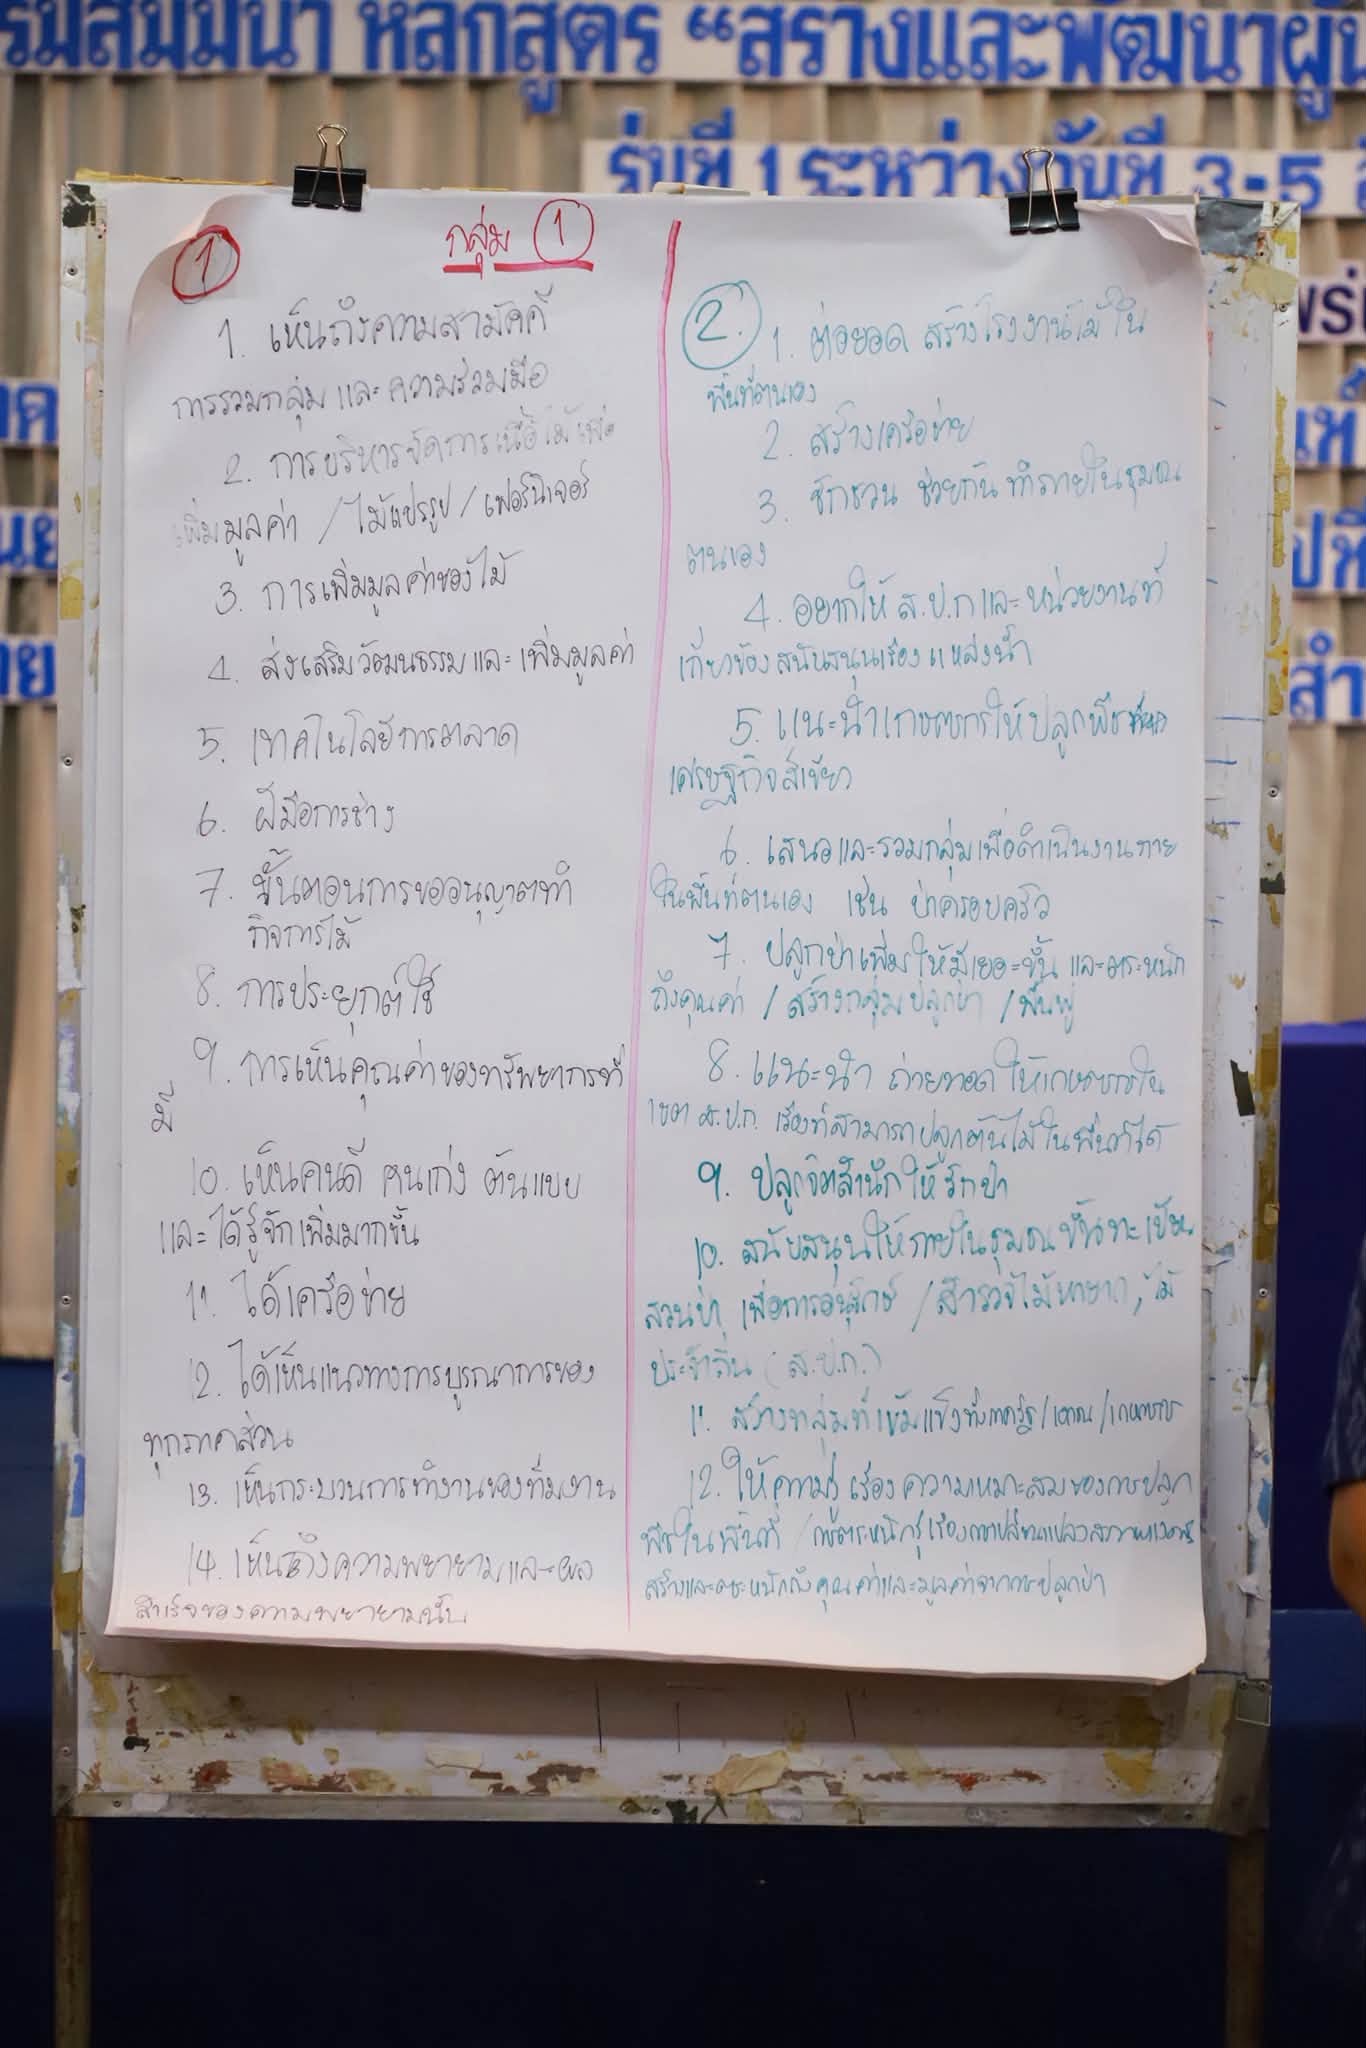 รมสัมมนา หลักสูตร “สร้างและพัฒนาผู้น
รุ่นที่ 1 ระหว่างวันที่ 3-5
กลุ่ม 1
1
1. เห็นถึงความสามัคคี
การรวมกลุ่ม และ ความร่วมมือ
2. การบริหารจัดการเนื้อไม้เพื่อ
เพิ่มมูลค่า / ไม้แปรรูป / เฟอร์นิเจอร์
3. การเพิ่มมูลค่าของไม้
4. ส่งเสริมวัฒนธรรมและเพิ่มมูลค่า
5. เทคโนโลยีการตลาด
6. ฝีมือการช่าง
7. ขั้นตอนการขออนุญาตทำ
กิจการไม้
8. การประยุกต์ใช้
9. การเห็นคุณค่าของทรัพยากรที่
มี
10. เห็นคนดี คนเก่ง ต้นแบบ
และได้รู้จักเพิ่มมากขึ้น
11. ได้เครือข่าย
12. ได้เห็นแนวทางการบูรณาการของ
ทุกภาคส่วน
13. เห็นกระบวนการทำงานของทีมงาน
14. เห็นถึงความพยายามและผล
สำเร็จของความพยายามนั้น
2.
1. ต่อยอด สร้างโรงงานไม้ใน
พื้นที่ตนเอง
2. สร้างเครือข่าย
3. ชักชวน ช่วยกัน ทำภายในชุมชน
ตนเอง
4. อยากให้ ส.ป.ก และ หน่วยงานที่
เกี่ยวข้อง สนับสนุนเรื่อง แหล่งน้ำ
5. แนะนำเกษตรกรให้ปลูกพืช
เศรษฐกิจสีเขียว
6. เสนอและรวมกลุ่มเพื่อดำเนินงานภาย
ในพื้นที่ตนเอง เช่น ป่าครอบครัว
7. ปลูกป่าเพิ่มให้มีเยอะขึ้น และตระหนัก
ถึงคุณค่า / สร้างกลุ่มปลูกป่า / ฟื้นฟู
8. แนะนำ ถ่ายทอดให้เกษตรกรใน
เขต ส.ป.ก. เรื่องที่สามารถปลูกต้นไม้ในพื้นที่ได้
9. ปลูกจิตสำนึกให้รักป่า
10. สนับสนุนให้ภายในชุมชนขึ้นทะเบียน
สวนป่า เพื่อการอนุรักษ์ / สำรวจไม้หายาก, ไม้
ประจำถิ่น (ส.ป.ก.)
11. สร้างกลุ่มที่เข้มแข็งทั้งภาครัฐ/เอกชน/เกษตรกร
12. ให้ความรู้ เรื่องความเหมาะสมของการปลูก
พืชในพื้นที่ / การตระหนักรู้เรื่องการเปลี่ยนแปลงสภาพ
สร้างและตระหนักถึงคุณค่าและมูลค่าจากการปลูกป่า